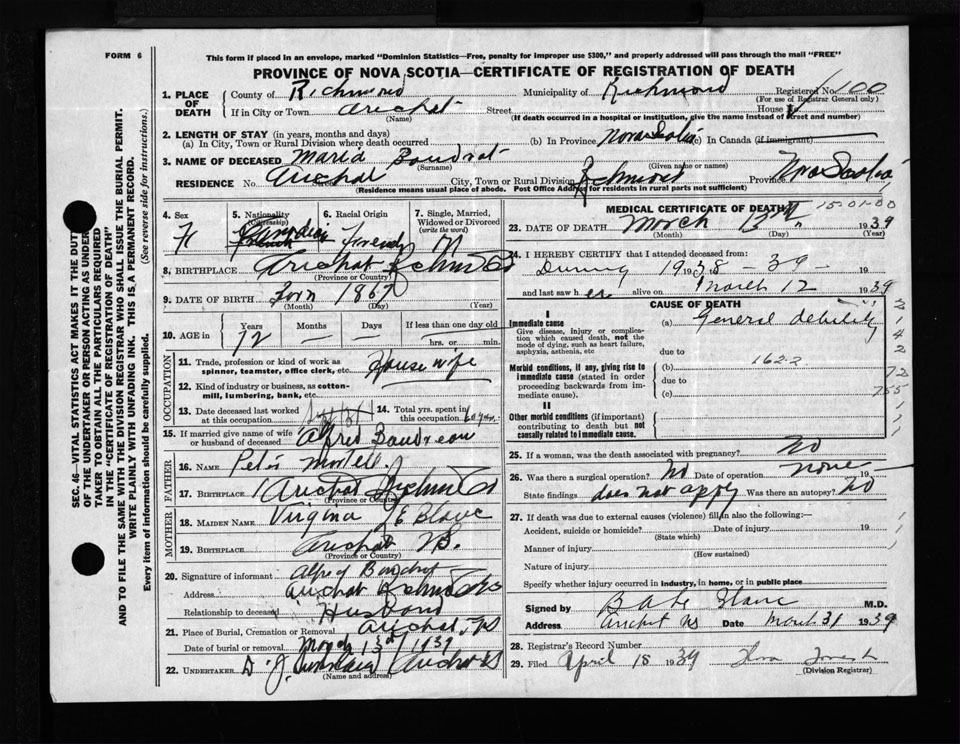 FORM 6
This form if placed in an envelope, marked "Dominion Statistics—Free, penalty for improper use $300," and properly addressed will pass through the mail "FREE"
PROVINCE OF NOVA SCOTIA—CERTIFICATE OF REGISTRATION OF DEATH
1. PLACE OF DEATH
County of Richmond Municipality of Richmond Registered No. 100
(For use of Registrar General only)
If in City or Town Arichat Street House
(Name) (If death occurred in a hospital or institution, give the name instead of street and number)
2. LENGTH OF STAY (in years, months and days)
(a) In City, Town or Rural Division where death occurred (b) In Province Nova Scotia (c) In Canada (if immigrant)
3. NAME OF DECEASED Maria Boudrot
(Surname) (Given name or names)
RESIDENCE No. Arichat Street City, Town or Rural Division Richmond Province Nova Scotia
(Residence means usual place of abode. Post Office Address for residents in rural parts not sufficient)
4. Sex F
5. Nationality (Citizenship) Canadian
6. Racial Origin French
7. Single, Married, Widowed or Divorced (write the word) M
8. BIRTHPLACE Arichat Richmond Co
(Province or Country)
9. DATE OF BIRTH 1867
(Month) (Day) (Year)
10. AGE in Years 72 Months — Days — If less than one day old hrs. or min.
OCCUPATION
11. Trade, profession or kind of work as spinner, teamster, office clerk, etc. House wife
12. Kind of industry or business, as cotton-mill, lumbering, bank, etc.
13. Date deceased last worked at this occupation
14. Total yrs. spent in this occupation 60 yrs.
15. If married give name of wife or husband of deceased Alfred Boudreau
FATHER
16. NAME
17. BIRTHPLACE Arichat Richmond Co
(Province or Country)
MOTHER
18. MAIDEN NAME Virgina LeBlanc
19. BIRTHPLACE Arichat NS.
(Province or Country)
20. Signature of informant Alfred Boudrot
Address Arichat Richmond Co
Relationship to deceased Husband
21. Place of Burial, Cremation or Removal Arichat NS
Date of burial or removal March 13th 1939
22. UNDERTAKER D. J. Arichat NS
(Name and address)
MEDICAL CERTIFICATE OF DEATH
15-01-00
23. DATE OF DEATH March 13th 1939
(Month) (Day) (Year)
24. I HEREBY CERTIFY that I attended deceased from:
During 1938 - 39 - 19
and last saw her alive on March 12 1939
CAUSE OF DEATH
I
Immediate cause
Give disease, injury or complication which caused death, not the mode of dying, such as heart failure, asphyxia, asthenia, etc
(a) General debility
due to
Morbid conditions, if any, giving rise to immediate cause (stated in order proceeding backwards from immediate cause).
(b) 162.2
due to
(c)
II
Other morbid conditions (if important) contributing to death but not causally related to immediate cause.
25. If a woman, was the death associated with pregnancy? No
26. Was there a surgical operation? No Date of operation none 19
State findings does not apply Was there an autopsy? No
27. If death was due to external causes (violence) fill in also the following:—
Accident, suicide or homicide? Date of injury 19
(State which)
Manner of injury
(How sustained)
Nature of injury
Specify whether injury occurred in industry, in home, or in public place
Signed by M.D.
Address Arichat NS Date March 31 1939
28. Registrar's Record Number
29. Filed April 18 1939
(Division Registrar)
SEC. 46—VITAL STATISTICS ACT MAKES IT THE DUTY
OF THE UNDERTAKER OR PERSON ACTING AS UNDERTAKER TO OBTAIN ALL THE PARTICULARS REQUIRED
IN THE "CERTIFICATE OF REGISTRATION OF DEATH"
AND TO FILE THE SAME WITH THE DIVISION REGISTRAR WHO SHALL ISSUE THE BURIAL PERMIT.
WRITE PLAINLY WITH UNFADING INK. THIS IS A PERMANENT RECORD.
Every item of information should be carefully supplied. (See reverse side for instructions.)